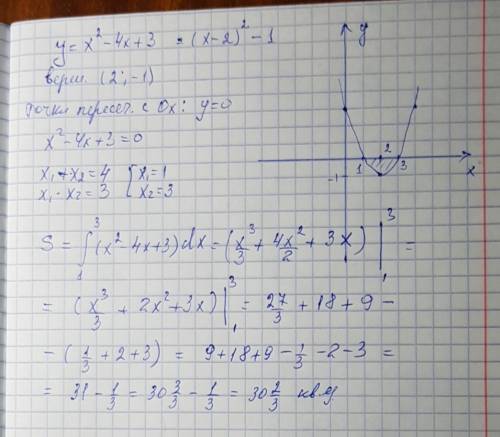 y = x² - 4x + 3 = (x-2)² - 1
верш. (2; -1)
точки пересеч. с Ox: y=0
x² - 4x + 3 = 0
x₁ + x₂ = 4 [x₁ = 1
x₁ · x₂ = 3 [x₂ = 3
y
2
1 3
x
-1
S = ∫₁³ (x² - 4x + 3) dx = (x³/3 + 4x²/2 + 3x) |₁³ =
= (x³/3 + 2x² + 3x) |₁³ = 27/3 + 18 + 9 -
- (1/3 + 2 + 3) = 9 + 18 + 9 - 1/3 - 2 - 3 =
= 31 - 1/3 = 30 3/3 - 1/3 = 30 2/3 кв.ед.